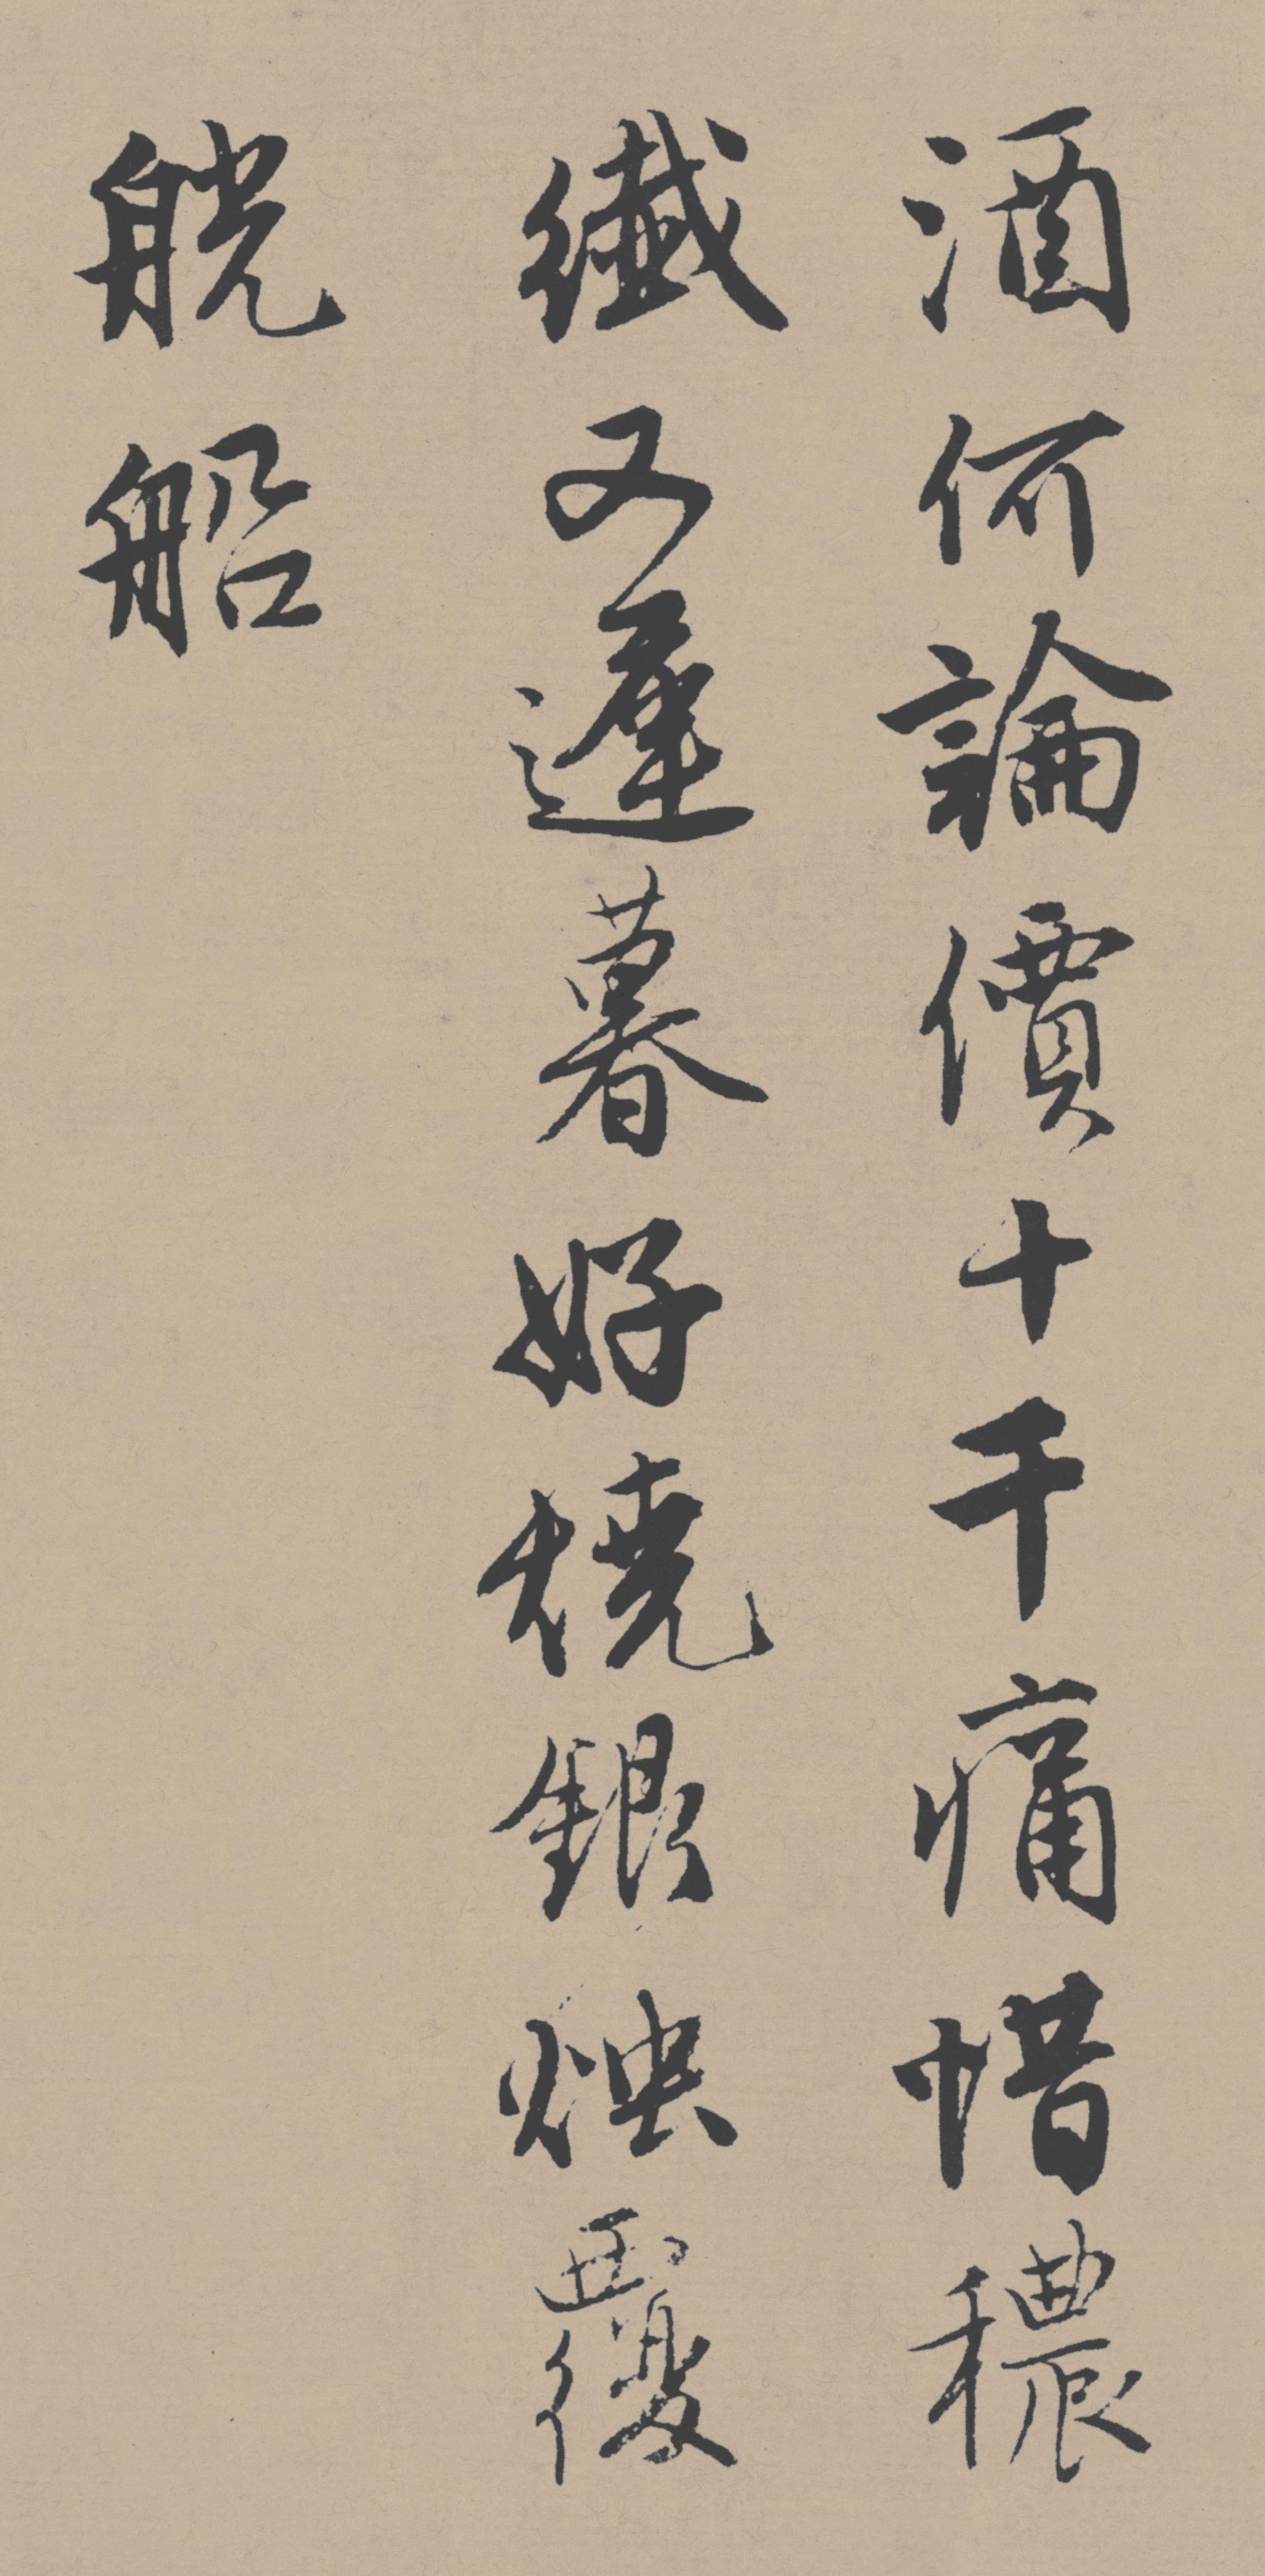 酒何論價十千痛惜穠
纎又遲暮好燒銀燭覆
觥船